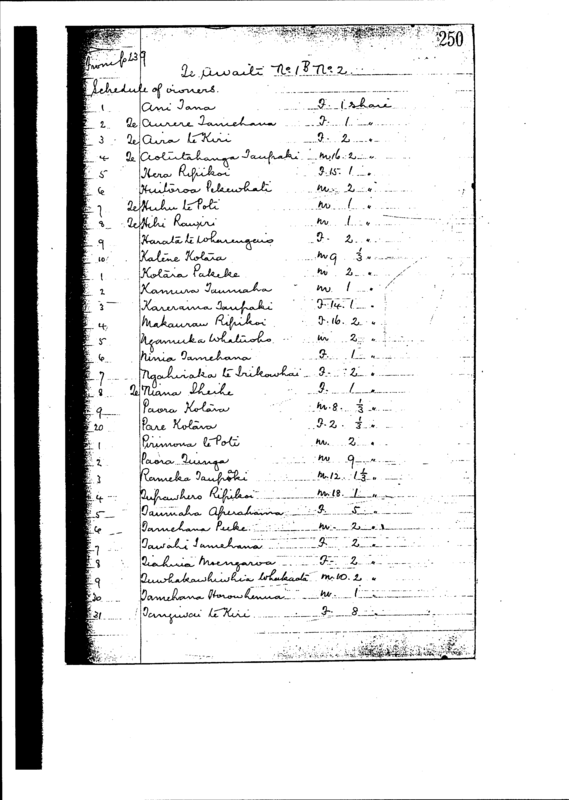 250
From fo 239
Te Awaiti No 1B No 2
Schedule of owners.
1 Ani Tana F. 1 share
2 Te Aurere Tamehana F. 1 "
3 Te Aira te Kiri F. 2 "
4 Te Aotutahanga Taupaki m.16. 2 "
5 Hera Ripikoi F.15. 1 "
6 Huitoroa Pekewhati m. 2 "
7 Te Huhu te Poti m 1 "
8 Te Hihi Rauiri m 1 "
9 Harata te F. 2 "
10 Kalene Kotara m 9 1/3 "
1 Kotara Pakeke m 2 "
2 Kamura Taumaha m. 1 "
3 Kareraina Taupaki F.14. 1 "
4 Makaurau Ripikoi F.16. 2 "
5 Ngamuka Whatuoho m 2 "
6 Ninia Tamehana F. 1 "
7 Ngahiraka te Irikowhai F. 2 "
8 Te Niana Iheihe F. 1 "
9 Paora Kotara m. 8. 1/3 "
20 Pare Kotara F. 2. 1/3 "
1 Pirimona te Poti m. 2 "
2 Paora Tiunga m 9 "
3 Rameka Taupoki m.12 1 1/3 "
4 Ripikoi m.18. 1 "
5 Taumaha Aperahama F. 5 "
6 Tamehana Puke m. 2 "
7 Tawahi Tamehana F. 2 "
8 Tiahuia Moengaroa F. 2 "
9 Tuwhakawhiwhia m.10. 2 "
30 Tamehana Horowhenua m. 1
31 Tangiwai te Kiri F. 8